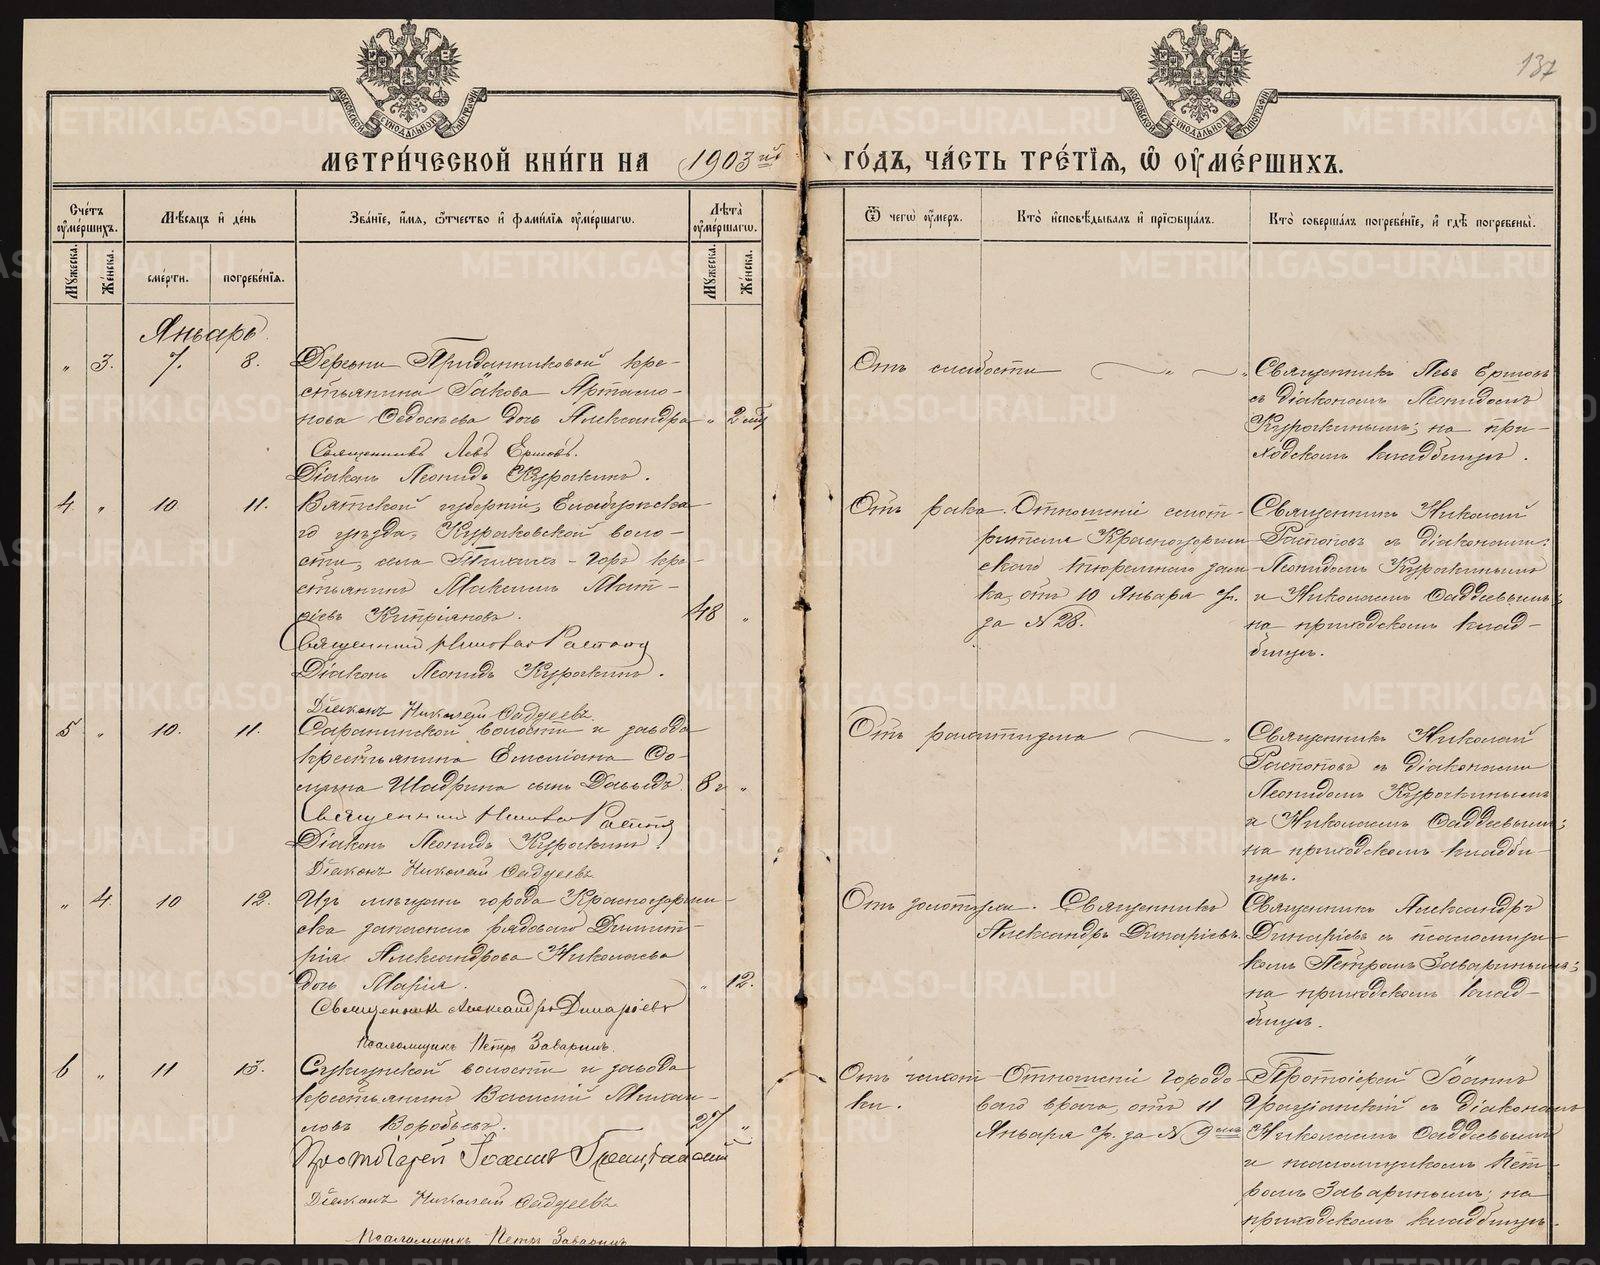 137
МОСКОВСКОЙ СѴНОДАЛЬНОЙ ТИПОГРАФІИ
МОСКОВСКОЙ СѴНОДАЛЬНОЙ ТИПОГРАФІИ
МЕТРИ́ЧЕСКОЙ КНИ́ГИ НА 1903 й
ГО́ДЪ, ЧА́СТЬ ТРЕ́ТІѦ, Ѡ҆ ОУ҆МЕ́РШИХЪ.
Сче́тъ оу҆ме́ршихъ.
Мѣ́сяцъ и҆ де́нь
Зва́ніе, и҆́мя, ѻ҆́тчество и҆ фами́лія оу҆ме́ршагѡ.
Лѣта̀ оу҆ме́ршагѡ.
Ѿ чегѡ̀ оу҆́меръ.
Кто̀ и҆сповѣ́дывалъ и҆ пріѡбща́лъ.
Кто̀ соверша́лъ погребе́ніе, и҆ гдѣ̀ погребены̀.
Му́жеска.
Же́нска.
сме́рти.
погребе́нія.
Му́жеска.
Же́нска.
Январь.
" 3. 7. 8.
Деревни Приданниковой кре-
стьянина Іакова Артамо-
нова Федосѣева дочь Александра " 2
Священникъ Левъ Ершовъ.
Діаконъ Леонидъ Курочкинъ.
Отъ слабости
Священникъ Левъ Ершовъ
съ діакономъ Леонидомъ
Курочкинымъ; на при-
ходскомъ кладбищѣ.
4. " 10 11.
Вятской губерніи, Елабужска-
го уѣзда, Кураковской воло-
сти, села Тихихъ-Горъ кре-
стьянинъ Максимъ
Кипріяновъ. 48 "
Священникъ Николай Распоповъ
Діаконъ Леонидъ Курочкинъ.
Діаконъ Николай Фаддеевъ.
Отъ рака.
Отношеніе смот-
рителя Красноуфим-
скаго тюремнаго зам-
ка, отъ 10 Января с/г.
за № 28.
Священникъ Николай
Распоповъ съ діаконами:
Леонидомъ Курочкинымъ
и Николаемъ Фаддеевымъ;
на приходскомъ клад-
бищѣ.
5 " 10. 11.
Саранинской волости и завода
крестьянина Емеліана Ѳо-
мина Шадрина сынъ Давыдъ. 8 г "
Священникъ Николай Распоповъ
Діаконъ Леонидъ Курочкинъ
Діаконъ Николай Фаддеевъ
Отъ ревматизма
Священникъ Николай
Распоповъ съ діаконами
Леонидомъ Курочкинымъ
и Николаемъ Фаддеевымъ;
на приходскомъ кладби-
щѣ.
" 4. 10 12.
Изъ мѣщанъ города Красноуфим-
ска запаснаго рядоваго Димит-
рія Александрова Николаева
дочь Марія. " 12.
Священникъ Александръ Динаріевъ
Псаломщикъ Петръ Заваринъ.
Отъ золотухи.
Священникъ
Александръ Динаріевъ.
Священникъ Александръ
Динаріевъ съ псаломщи-
комъ Петромъ Заваринымъ;
на приходскомъ клад-
бищѣ.
6 " 11 13.
Суксунской волости и завода
крестьянинъ Василій Михаи-
ловъ Воробьевъ. 27 "
Протоіерей Іоаннъ Граціанскій
Діаконъ Николай Фаддеевъ
Псаломщикъ Петръ Заваринъ
Отъ чахот-
ки.
Отношеніе Городо-
ваго врача, отъ 11
Января с/г. за № 9
Протоіерей Іоаннъ
Граціанскій съ діакономъ
Николаемъ Фаддеевымъ
и псаломщикомъ Пет-
ромъ Заваринымъ; на
приходскомъ кладбищѣ.
METRIKI.GASO-URAL.RU